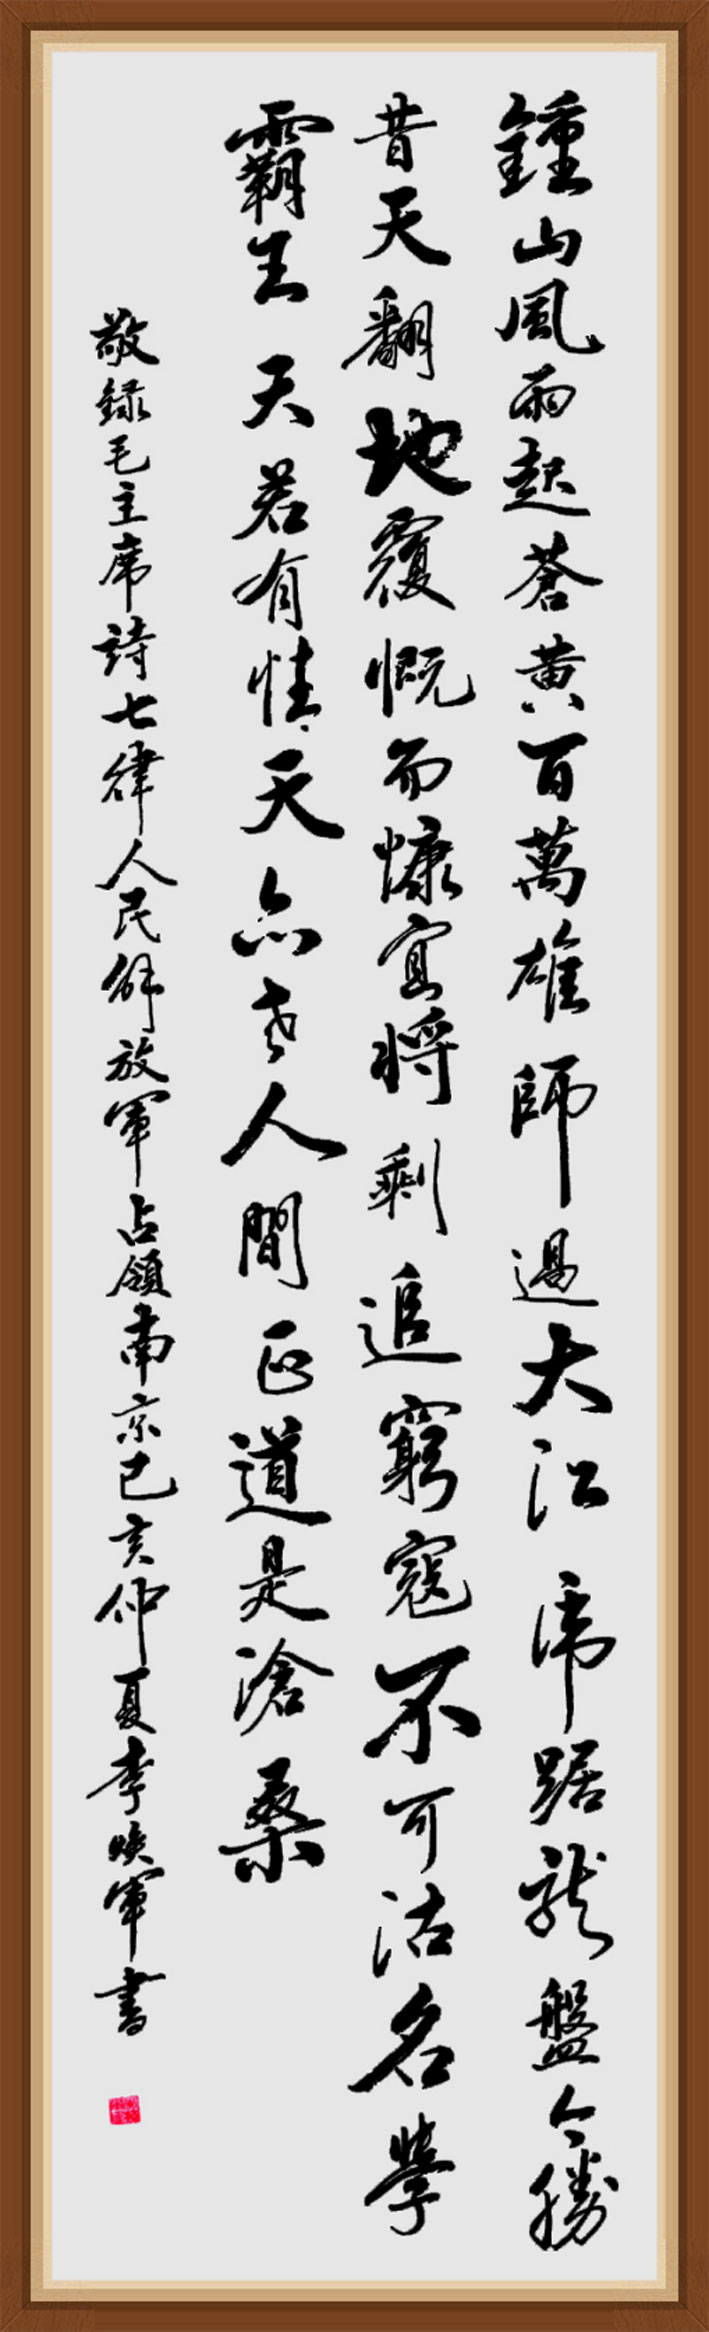 鍾山風雨起蒼黄百萬雄師過大江虎踞龍盤今勝
昔天翻地覆慨而慷宜将剩追窮寇不可沽名學
霸王天若有情天亦老人間正道是滄桑
敬録毛主席詩七律人民解放軍占領南京己亥仲夏李軍書